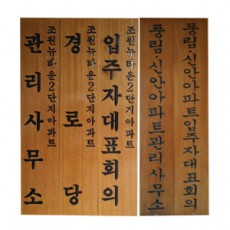 조원뉴타운2단지아파트
관리사무소
조원뉴타운2단지아파트
경로당
조원뉴타운2단지아파트
입주자대표회의
풍림·신안아파트관리사무소
풍림·신안아파트입주자대표회의